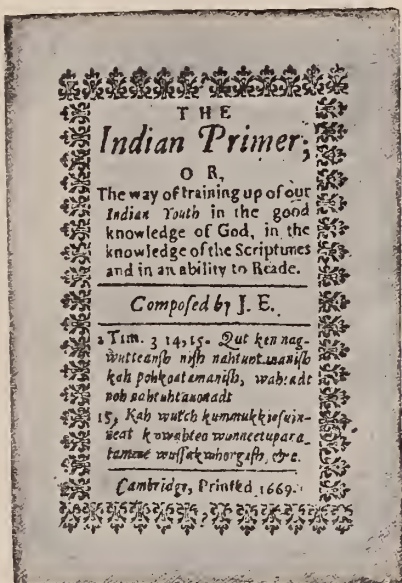 THE
Indian Primer;
OR,
The way of training up of our
Indian Youth in the good
knowledge of God, in the
knowledge of the Scriptures
and in an ability to Reade.
Composed by J. E.
2 Tim. 3 14, 15. Qut ken nag-
wutteansh nish nahtuhtauanish
kah pohkontamanish, waheadt
noh nahtuhtauonadt
15, Kah wutch kummukkiesuin-
neat kowahteo wunneetupana-
tamwe wussukwhongash, &c.
Cambridge, Printed 1669.